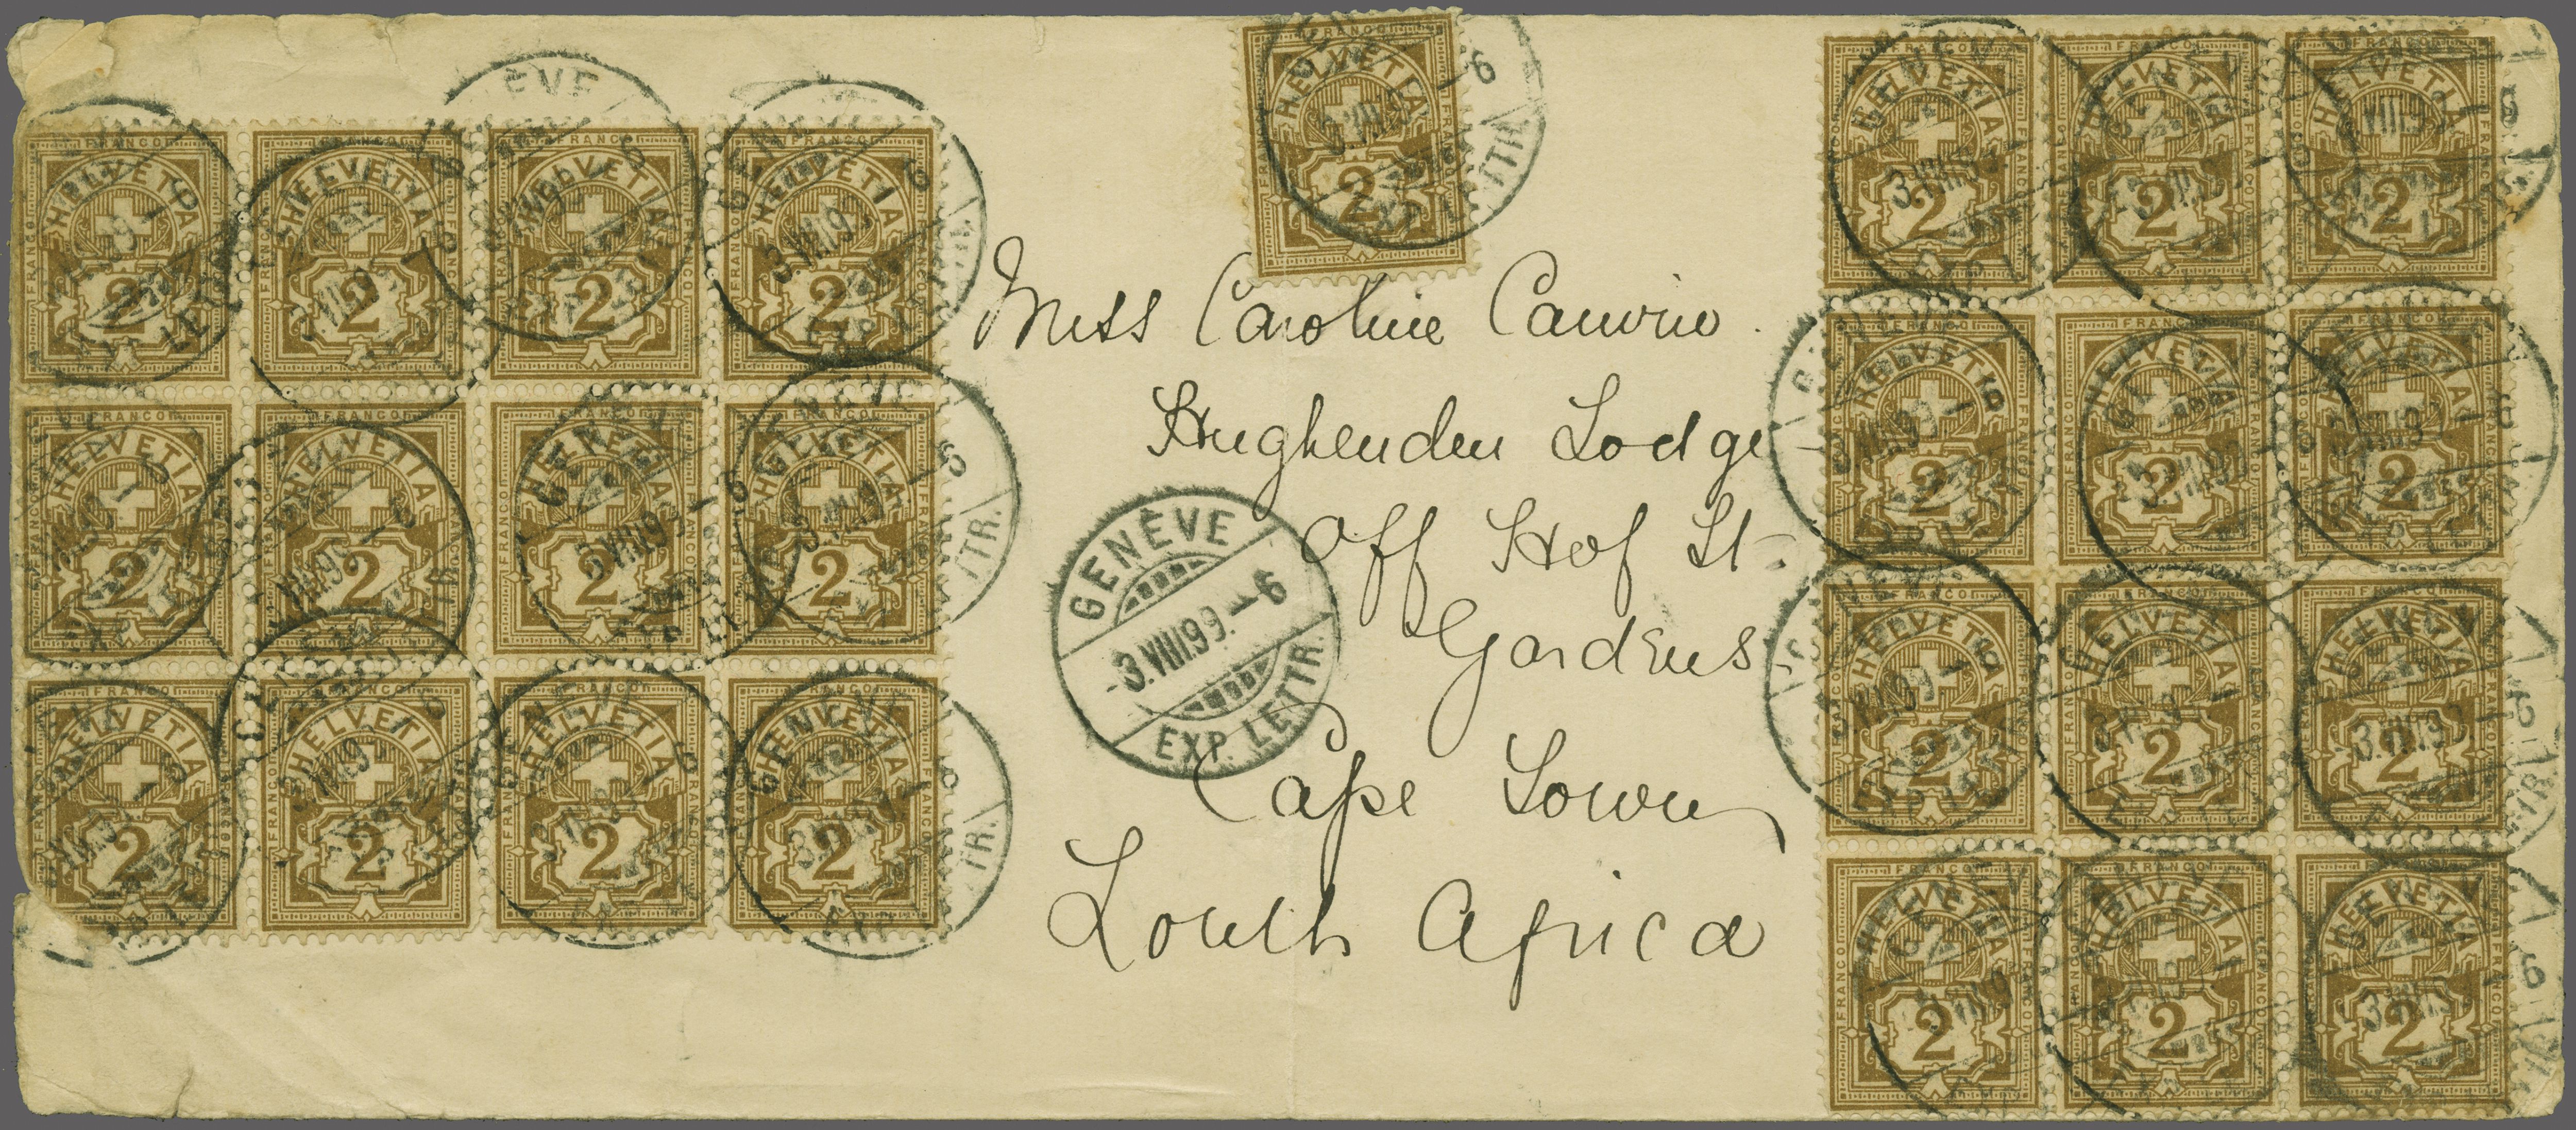 FRANCO
HELVETIA
2
Miss Caroline
Hughenden Lodge
Off Hof St.
Gardens
Cape Town
South Africa
GENÈVE
-3.VIII.99.-6
EXP. LETTR.